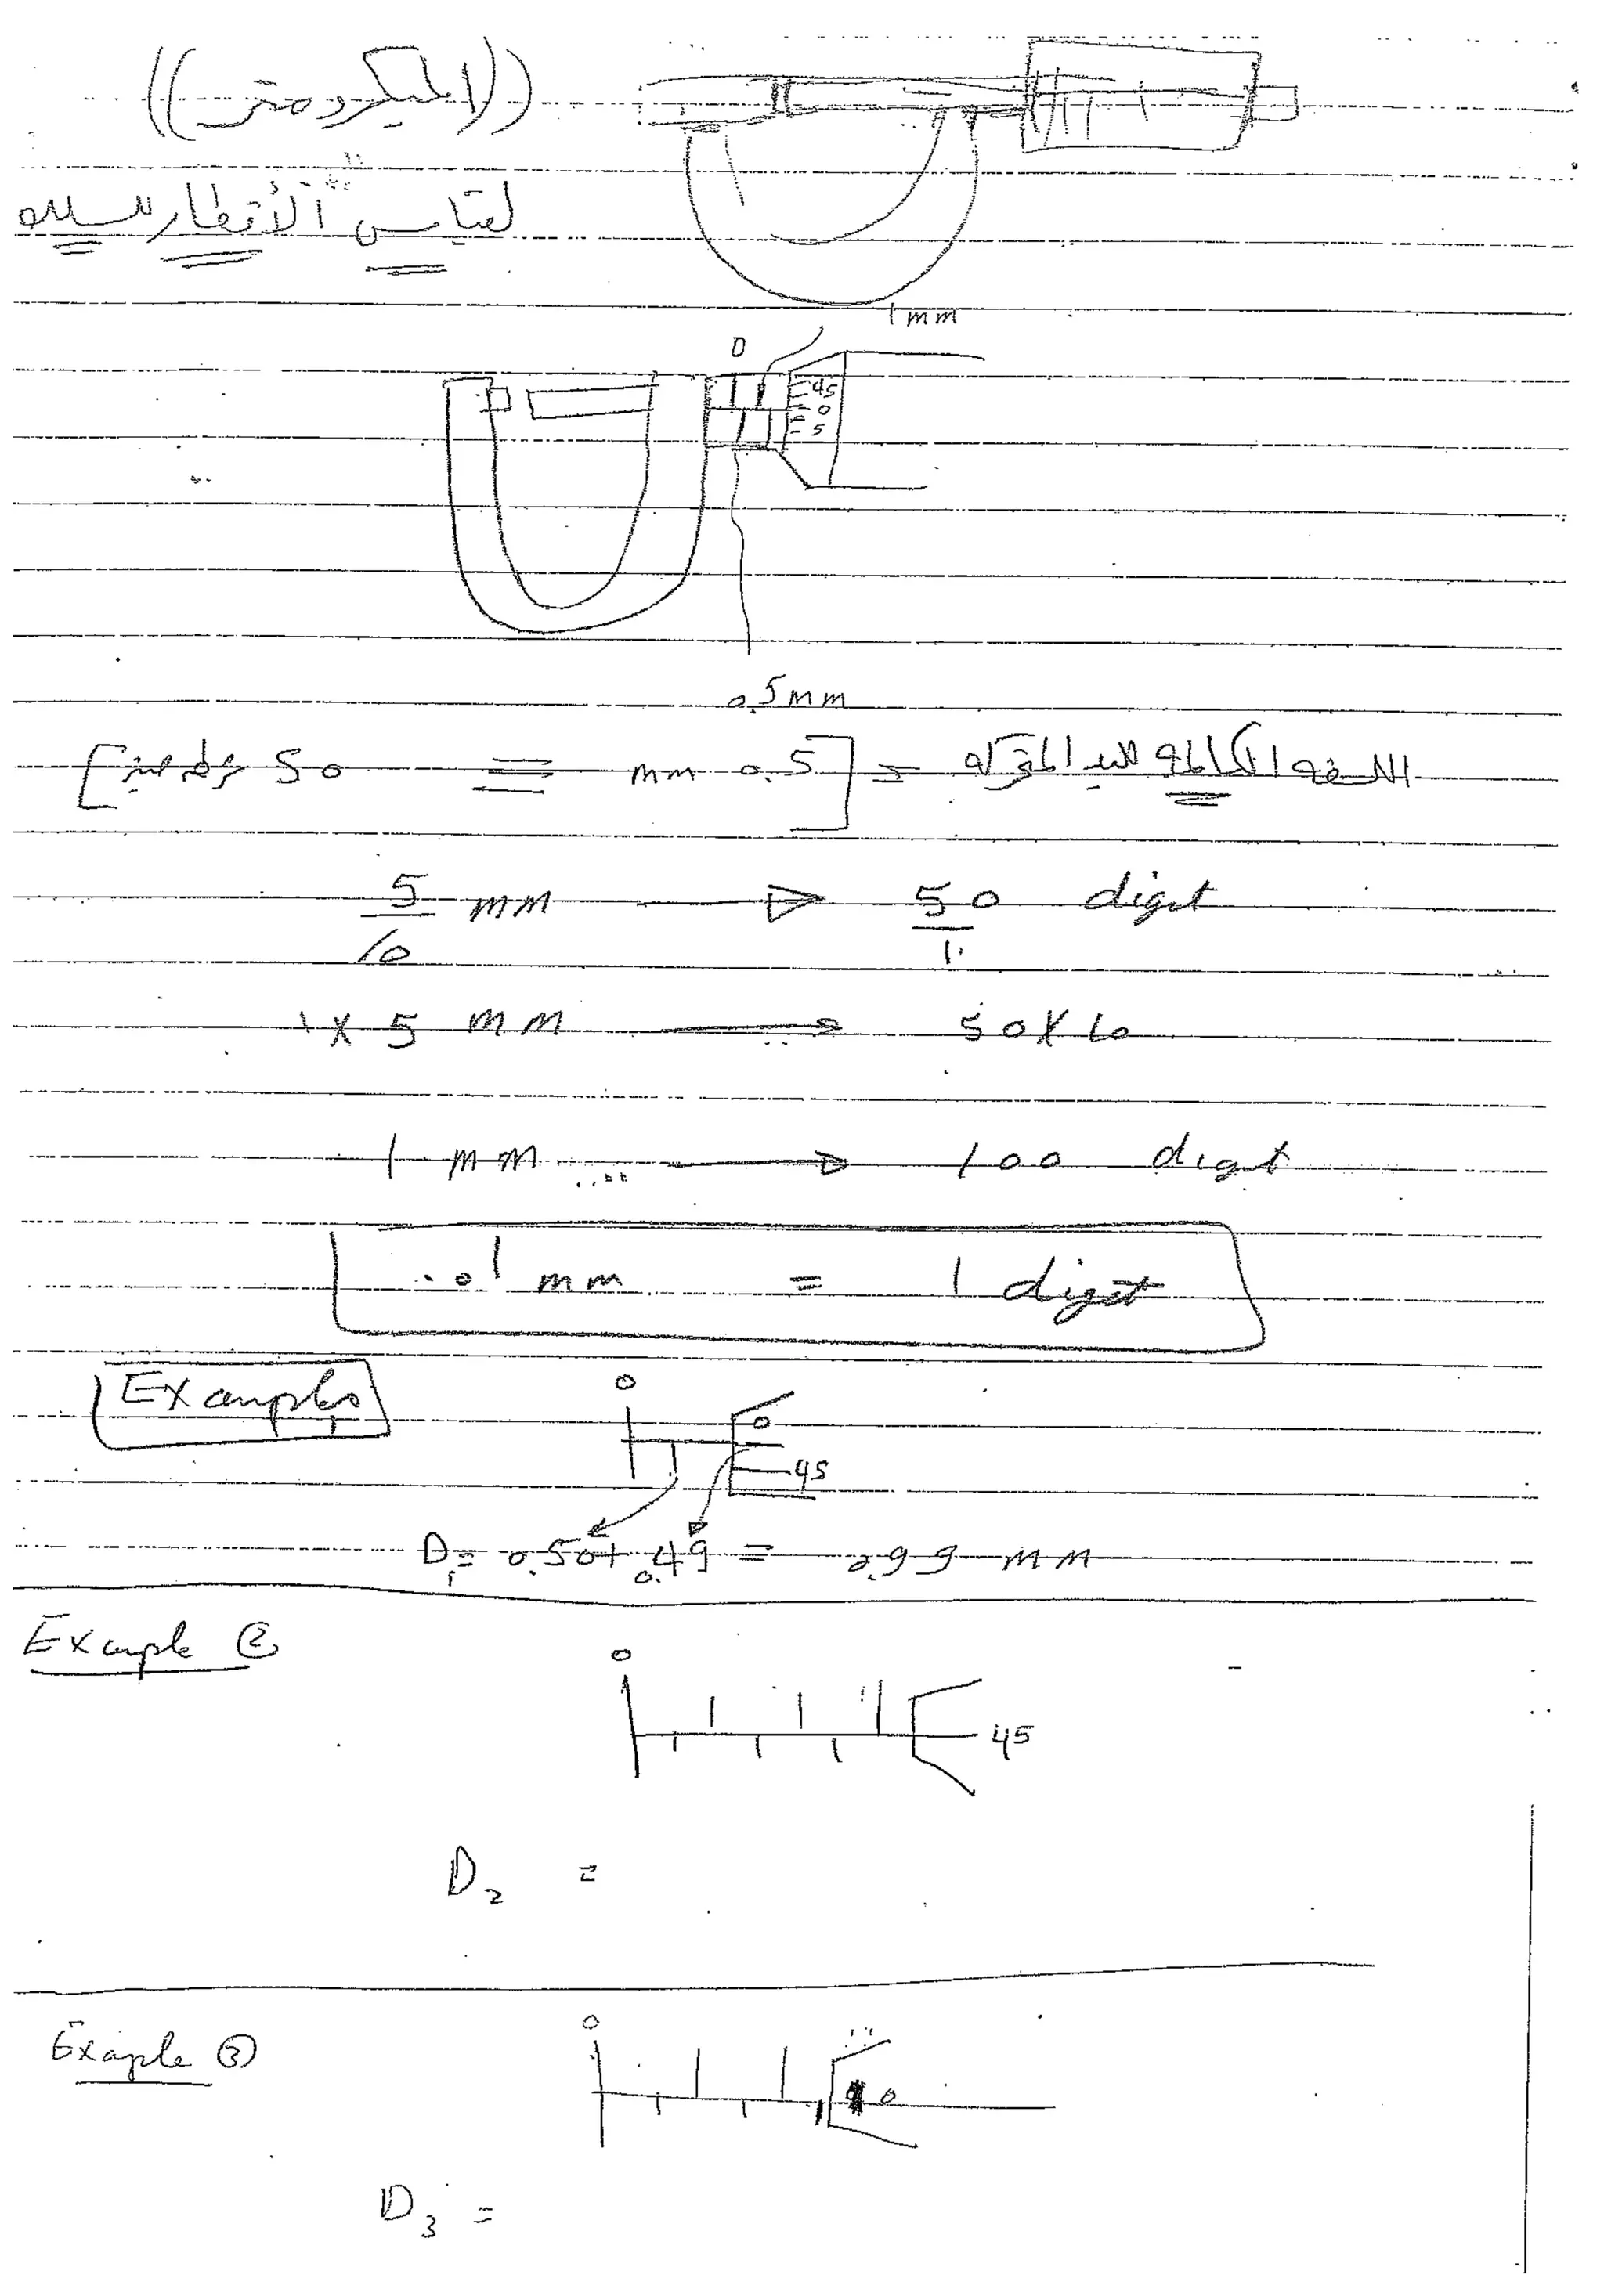 ((الميكرومتر))
لقياس الأقطار للسلك
1 mm
0
45
0
5
0.5 mm
اللفة الكاملة لليد المتحركة = [0.5 mm ≡ 50
5/10 mm → 50/1 digit
1 x 5 mm → 50 x 10
1 mm → 100 digit
.01 mm = 1 digit
Examples
0
0
45
D1 = 0.50 + 0.49 = 0.99 mm
Example ②
0
45
D2 =
Exaple ③
0
0
D3 =